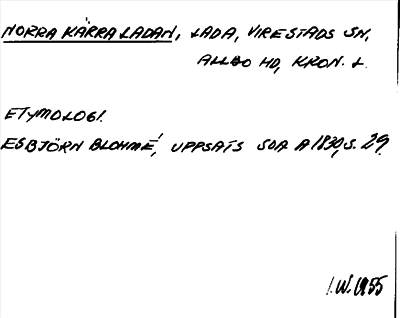 NORRA KÄRRA LADAN, LADA, VIRESTADS SN,
ALLBO HD, KRON. L.
ETYMOLOGI.
ESBJÖRN BLOHMÉ, UPPSATS SOA A 1830, S. 29.
I.W. 1955